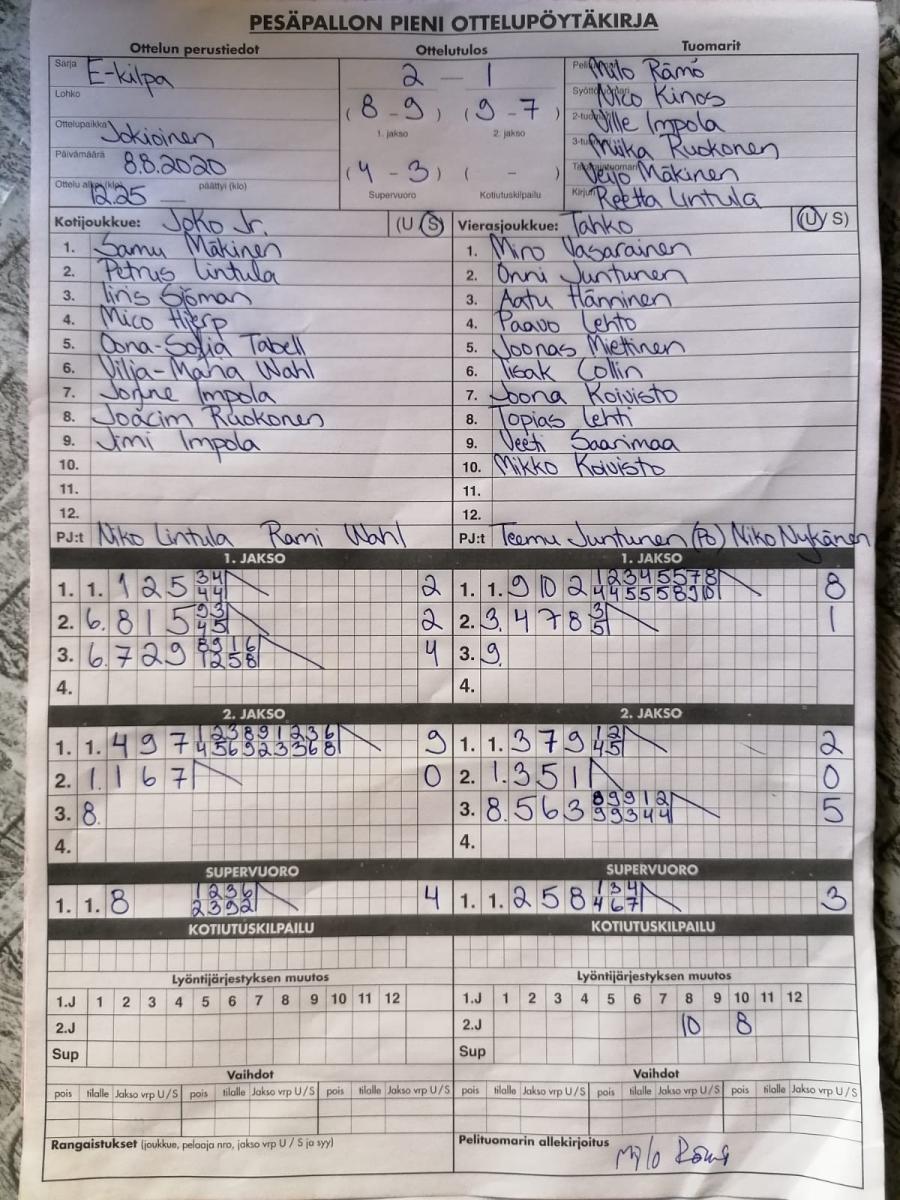 PESÄPALLON PIENI OTTELUPÖYTÄKIRJA
Ottelun perustiedot Ottelutulos Tuomarit
Sarja E-kilpa
Lohko
Ottelupaikka Jokioinen
Päivämäärä 8.8.2020
Ottelu alkoi (klo) 12.25 — päättyi (klo)
2 — 1
(8 - 9) (9 - 7)
1. jakso 2. jakso
(4 - 3) ( - )
Supervuoro Kotiutuskilpailu
Milo Rämö
Nico Kinos
2-tuomari Ville Impola
3-tuomari Miika Ruokonen
Takarajatuomari Veijo Mäkinen
Kirjuri Reetta Lintula
Kotijoukkue: Joko Jr. (U S)
1. Samu Mäkinen
2. Petrus Lintula
3. Iiris Sjöman
4. Mico Hjerp
5. Oona-Sofia Tabell
6. Vilja-Maria Wahl
7. Jorine Impola
8. Joacim Ruokonen
9. Jimi Impola
10.
11.
12.
PJ:t Niko Lintula Rami Wahl
Vierasjoukkue: Tahko (U S)
1. Miro Vasarainen
2. Onni Juntunen
3. Aatu Hänninen
4. Paavo Lehto
5. Joonas Miettinen
6. Iisak Collin
7. Joona Koivisto
8. Topias Lehti
9. Veeti Saarimaa
10. Mikko Koivisto
11.
12.
PJ:t Teemu Juntunen (Po) Niko Nykänen
1. JAKSO
1. 1. 1 2 5 3 4 2
4 4
2. 6. 8 1 5 9 3 2
4 5
3. 6. 7 2 9 8 9 1 6 4
1 2 5 8
4.
1. JAKSO
1. 1. 9 10 2 1 2 3 4 5 5 7 8 8
4 4 5 5 5 8 9 10
2. 3. 4 7 8 3 1
5
3. 9.
4.
2. JAKSO
1. 1. 4 9 7 1 2 3 8 9 1 2 3 6 9
4 5 6 9 2 3 3 6 8
2. 1. 1 6 7 0
3. 8.
4.
2. JAKSO
1. 1. 3 7 9 1 2 2
4 5
2. 1. 3 5 1 0
3. 8. 5 6 3 8 9 9 1 2 5
9 9 3 4 4
4.
SUPERVUORO
1. 1. 8 1 2 3 6 4
2 3 9 2
SUPERVUORO
1. 1. 2 5 8 1 3 4 3
4 6 7
KOTIUTUSKILPAILU KOTIUTUSKILPAILU
Lyöntijärjestyksen muutos
1.J 1 2 3 4 5 6 7 8 9 10 11 12
2.J
Sup
Lyöntijärjestyksen muutos
1.J 1 2 3 4 5 6 7 8 9 10 11 12
2.J 10 8
Sup
Vaihdot
pois tilalle Jakso vrp U/S pois tilalle Jakso vrp U/S pois tilalle Jakso vrp U/S
Vaihdot
pois tilalle Jakso vrp U/S pois tilalle Jakso vrp U/S pois tilalle Jakso vrp U/S
Rangaistukset (joukkue, pelaaja nro, jakso vrp U / S ja syy)
Pelituomarin allekirjoitus
Milo Rämö